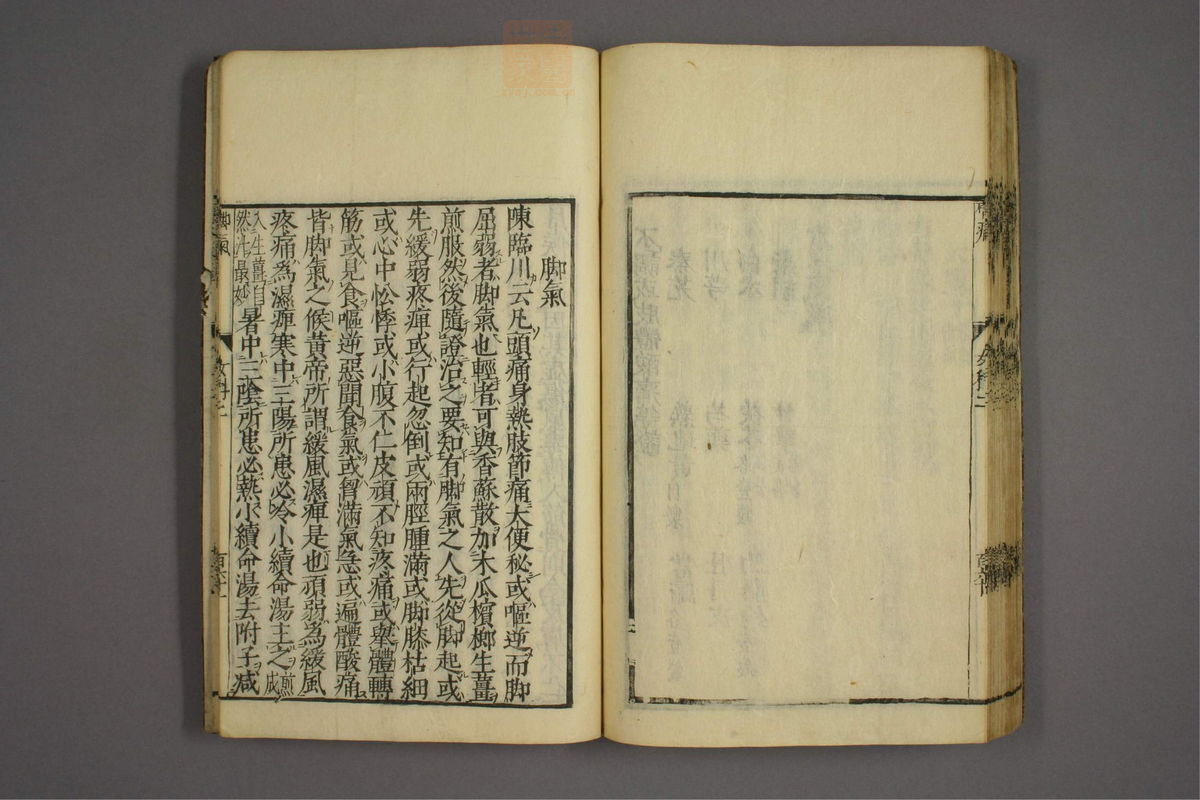 脚氣
陳臨川云凡頭痛身熱肢節痛大便秘或嘔逆而脚
屈弱者脚氣也輕者可與香蘇散加木瓜檳榔生薑
煎服然後隨證治之要知有脚氣之人先從脚起或
先緩弱疼痺或行起忽倒或兩脛腫滿或脚膝枯細
或心中忪悸或小腹不仁皮頑不知疼痛或舉體轉
筋或見食嘔逆惡聞食氣或胷滿氣急或遍體酸痛
皆脚氣之候黃帝所謂緩風濕痺是也頑弱爲緩風
疼痛爲濕痺寒中三陽所患必冷小續命湯主之煎成
入生薑自然汁最妙暑中三陰所患必熱小續命湯去附子减